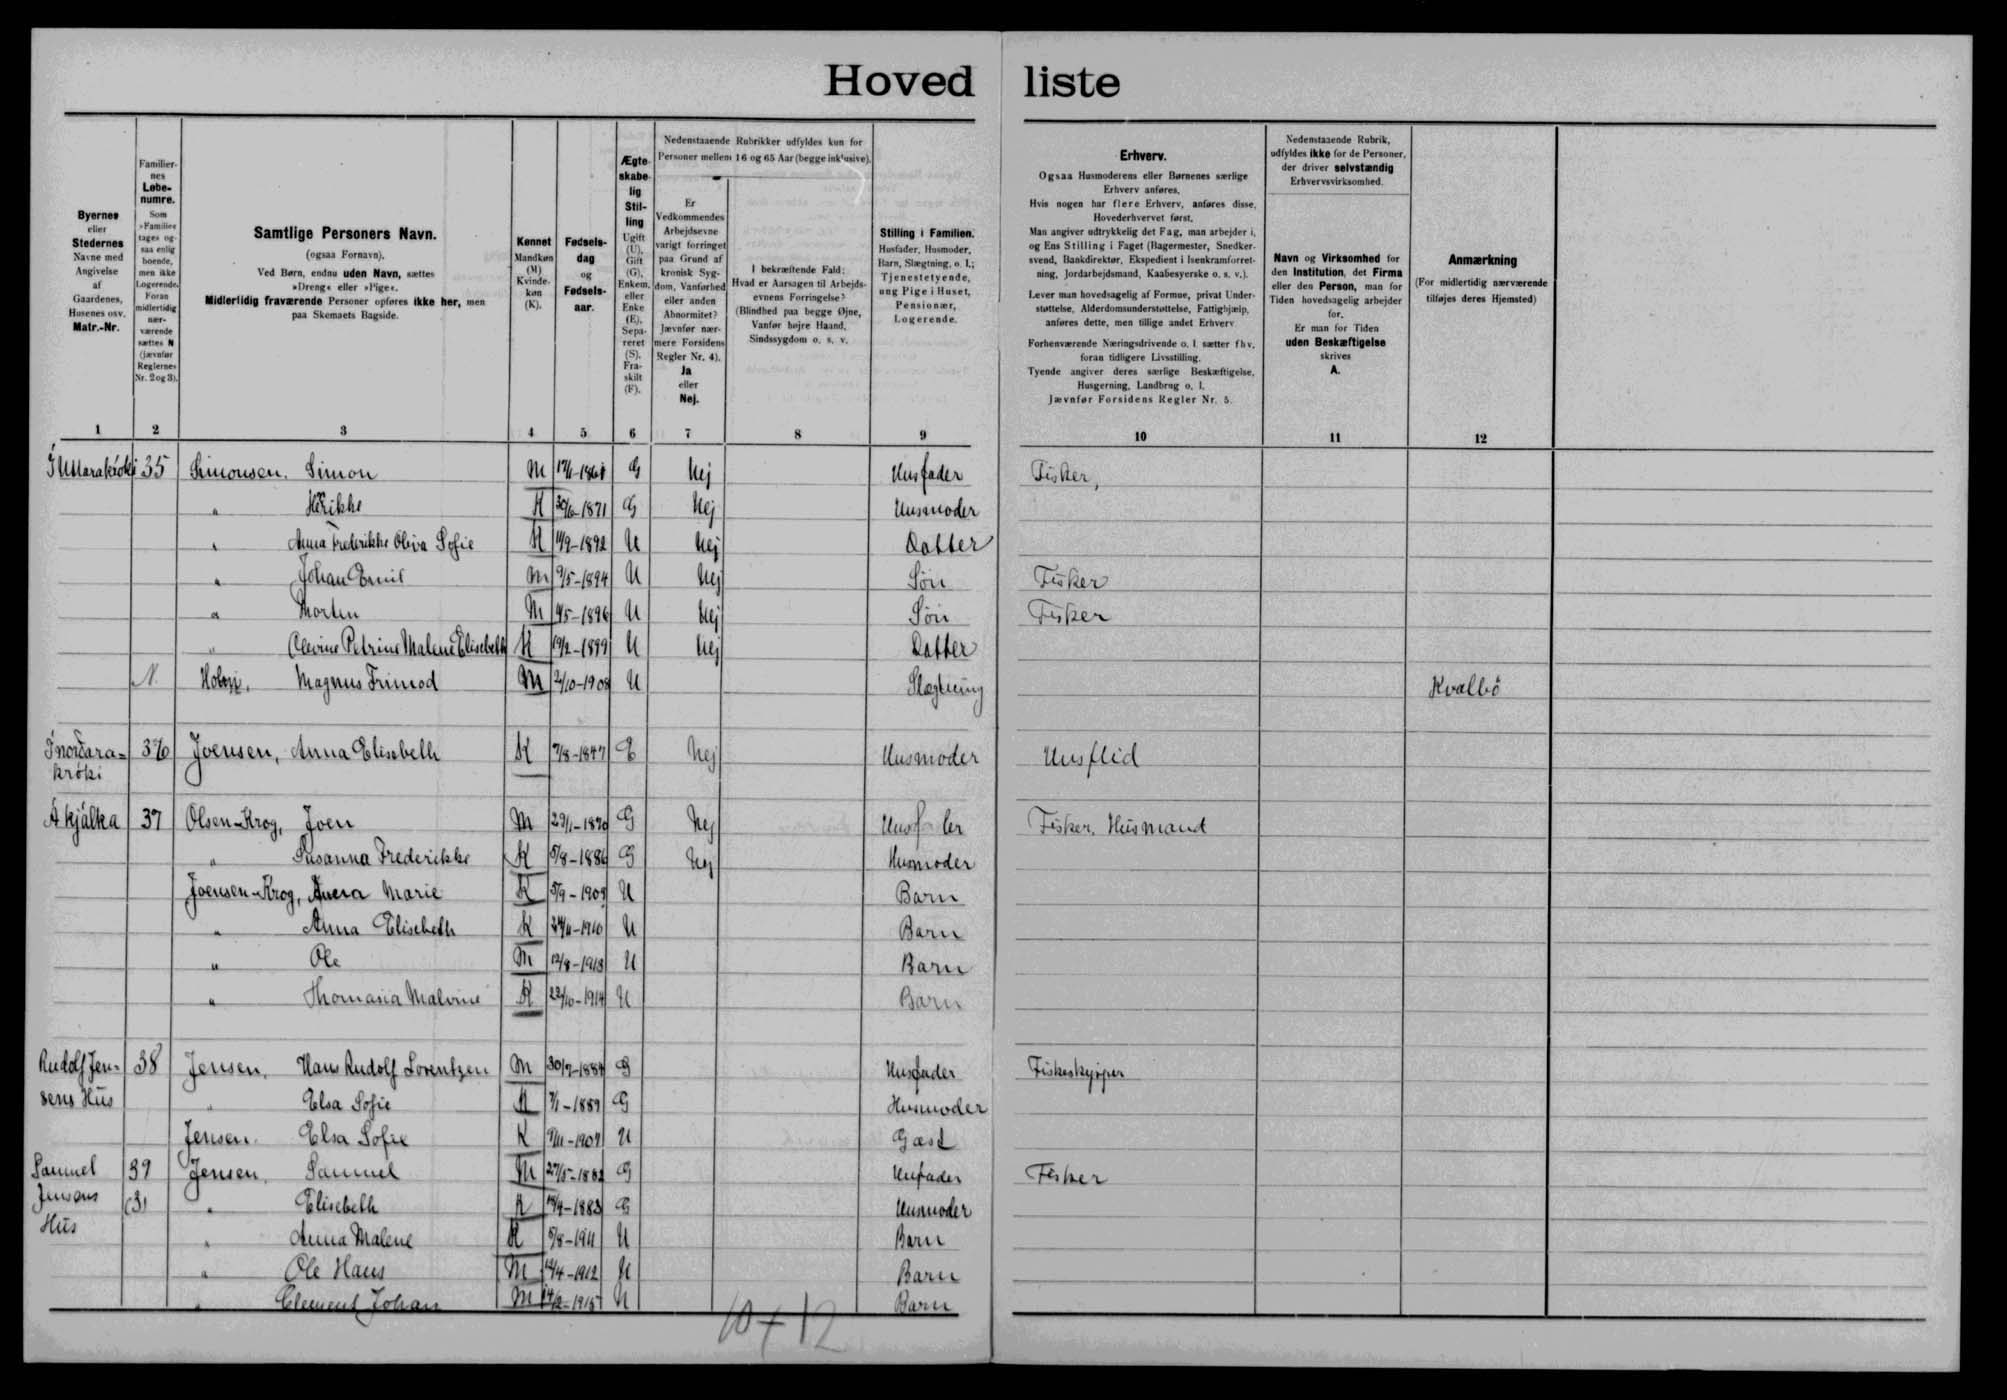 Hoved liste
Byernes
eller
Stedernes
Navne med
Angivelse
af
Gaardenes,
Husenes osv.
Matr.-Nr.
Familier-
nes
Løbe-
numre.
Som
»Familie«
tages og-
saa enlig
boende,
men ikke
Logerende.
Foran
midlertidig
nær-
værende
sættes N
(jævnfør
Reglernes
Nr. 2 og 3).
Samtlige Personers Navn.
(ogsaa Fornavn).
Ved Børn, endnu uden Navn, sættes
»Dreng« eller »Pige«.
Midlertidig fraværende Personer opføres ikke her, men
paa Skemaets Bagside.
Kønnet
Mandkøn
(M)
Kvinde-
køn
(K).
Fødsels-
dag
og
Fødsels-
aar.
Ægte-
skabe-
lig
Stil-
ling
Ugift
(U),
Gift
(G),
Enkem.
eller
Enke
(E),
Sepa-
reret
(S),
Fra-
skilt
(F).
Nedenstaaende Rubrikker udfyldes kun for
Personer mellem 16 og 65 Aar (begge inklusive).
Er
Vedkommendes
Arbejdsevne
varigt forringet
paa Grund af
kronisk Syg-
dom, Vanførhed
eller anden
Abnormitet?
Jævnfør nær-
mere Forsidens
Regler Nr. 4).
Ja
eller
Nej.
I bekræftende Fald:
Hvad er Aarsagen til Arbejds-
evnens Forringelse?
(Blindhed paa begge Øjne,
Vanfør højre Haand,
Sindssygdom o. s. v.
Stilling i Familien.
Husfader, Husmoder,
Barn, Slægtning, o. l.;
Tjenestetyende,
ung Pige i Huset,
Pensionær,
Logerende.
Erhverv.
Ogsaa Husmoderens eller Børnenes særlige
Erhverv anføres.
Hvis nogen har flere Erhverv, anføres disse,
Hovederhvervet først.
Man angiver udtrykkelig det Fag, man arbejder i,
og Ens Stilling i Faget (Bagermester, Snedker-
svend, Bankdirektør, Ekspedient i Isenkramforret-
ning, Jordarbejdsmand, Kaabesyerske o. s. v.).
Lever man hovedsagelig af Formue, privat Under-
støttelse, Alderdomsunderstøttelse, Fattighjælp,
anføres dette, men tillige andet Erhverv
Forhenværende Næringsdrivende o. l. sætter fhv.
foran tidligere Livsstilling.
Tyende angiver deres særlige Beskæftigelse,
Husgerning, Landbrug o. l.
Jævnfør Forsidens Regler Nr. 5.
Nedenstaaende Rubrik,
udfyldes ikke for de Personer,
der driver selvstændig
Erhvervsvirksomhed.
Navn og Virksomhed for
den Institution, det Firma
eller den Person, man for
Tiden hovedsagelig arbejder
for.
Er man for Tiden
uden Beskæftigelse
skrives
A.
Anmærkning
(For midlertidig nærværende
tilføjes deres Hjemsted)
1 2 3 4 5 6 7 8 9 10 11 12
35 Simonsen, Simon M G Nej Husfader Fisker,
" K 30/6-1871 G Nej Husmoder
" Anna Frederikke Oliva Sofie K 11/9-1892 U Nej Datter
" Johan Emil M 9/5-1894 U Nej Søn Fisker
" Morten M 4/5-1896 U Nej Søn Fisker
" Olevine Petrine Malene Elisebeth K 19/2-1899 U Nej Datter
N. Magnus Frimod M 2/10-1908 U Slægtning Kvalbö
Í norðara= 36 Joensen, Anna Elisebeth K 7/8-1847 E Nej Husmoder Husflid
króki
Á kjálka 37 Olsen-Krog, Joen M 29/1-1870 G Nej Fisker, Husmand
" Susanna Frederikke K 5/8-1886 G Nej Husmoder
Joensen-Krog, Marie K 5/9-1909 U Barn
" Anna Elisebeth K 24/11-1910 U Barn
" Ole M 12/8-1913 U Barn
" Thomasia Malvine K 22/10-1914 U Barn
Rudolf Jen- 38 Jensen, Hans Rudolf Lorentzen M 30/7-1884 G Husfader Fiskeskipper
sens Hus " Elsa Sofie K 7/1-1889 G Husmoder
Jensen. Elsa Sofie K 9/11-1907 U Gæst
Samuel 39 Jensen, Samuel M 27/5-1882 G Husfader Fisker
Jensens (3) " Elisebeth K 1883 G Husmoder
Hus " Anna Malene K 5/8-1911 U Barn
" Ole Hans M 1912 U Barn
" Clement Johan M 14/2-1915 U Barn
10+12